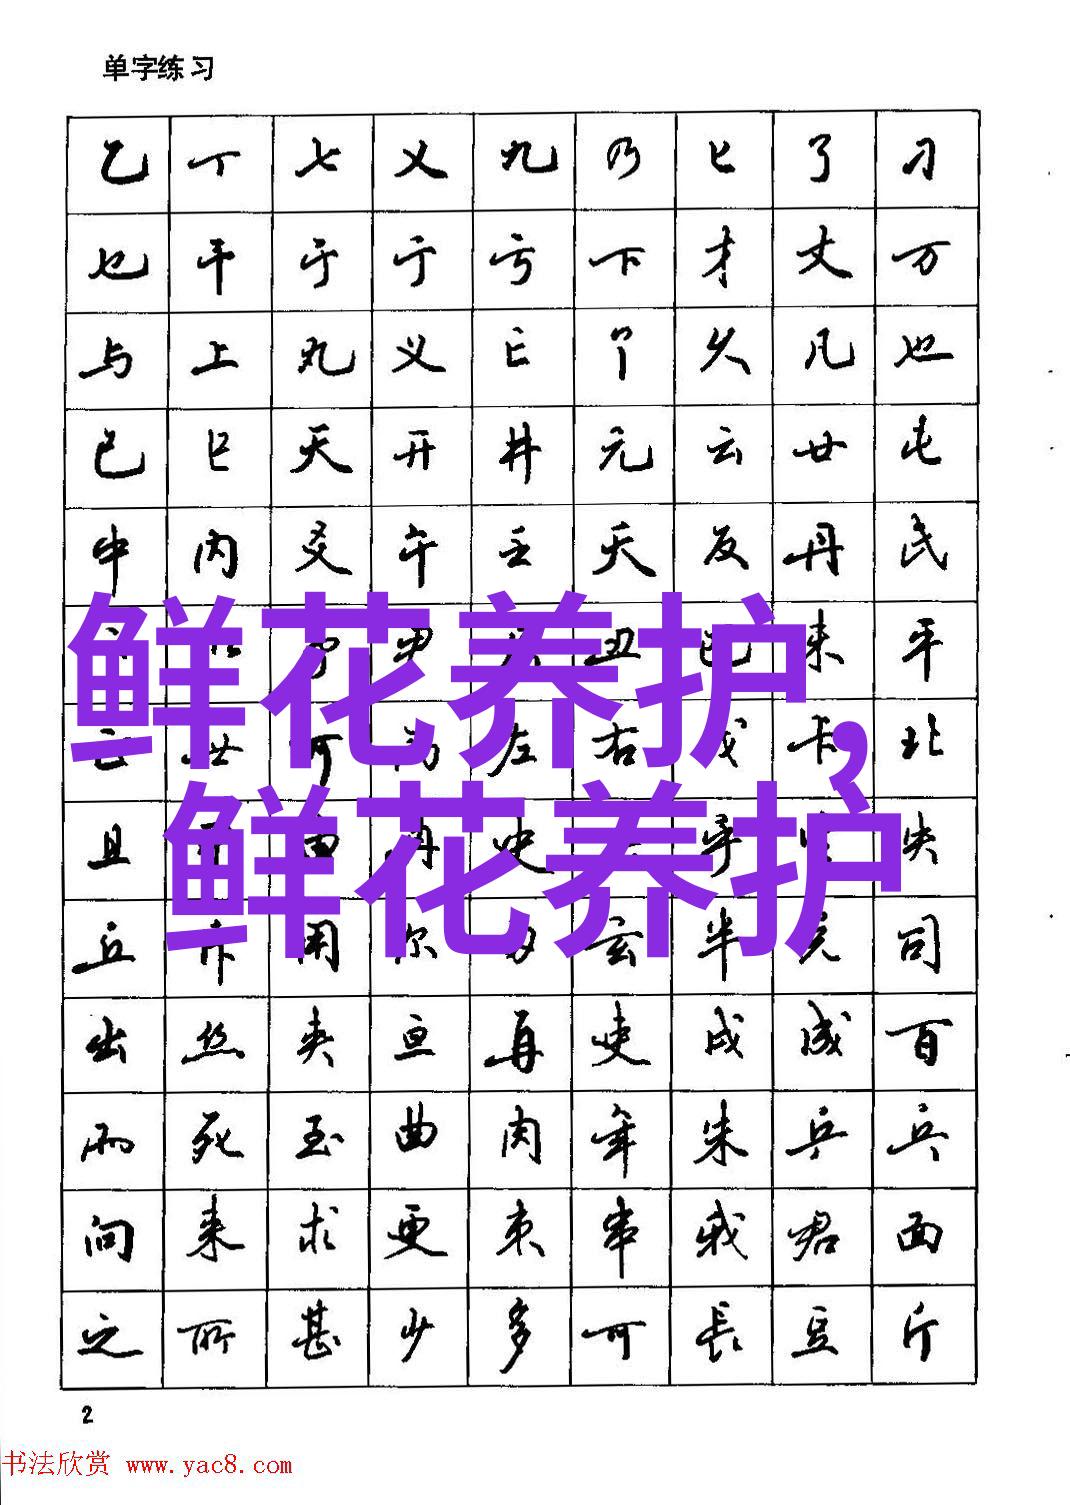 单字练习
乙 丁 七 乂 九 乃 匕 了 刁
也 平 于 于 亏 下 才 丈 万
与 上 丸 义 亡 卩 久 凡 也
已 巳 天 开 井 元 云 廿 屯
中 内 爻 午 壬 夭 反 丹 民
甲 丑 巴 未 平
世 可 为 左 右 戈 卡 北
且 由 冉 史 乎 失
丘 乍 用 尔 玄 半 司
出 丝 夹 亘 再 吏 成 成 百
两 死 至 曲 肉 年 朱 乒 乓
向 来 求 更 束 串 我 君 面
之 所 甚 少 多 可 長 豆 斤
鲜花养护,
鲜花养护
2
书法欣赏 www.yac8.com